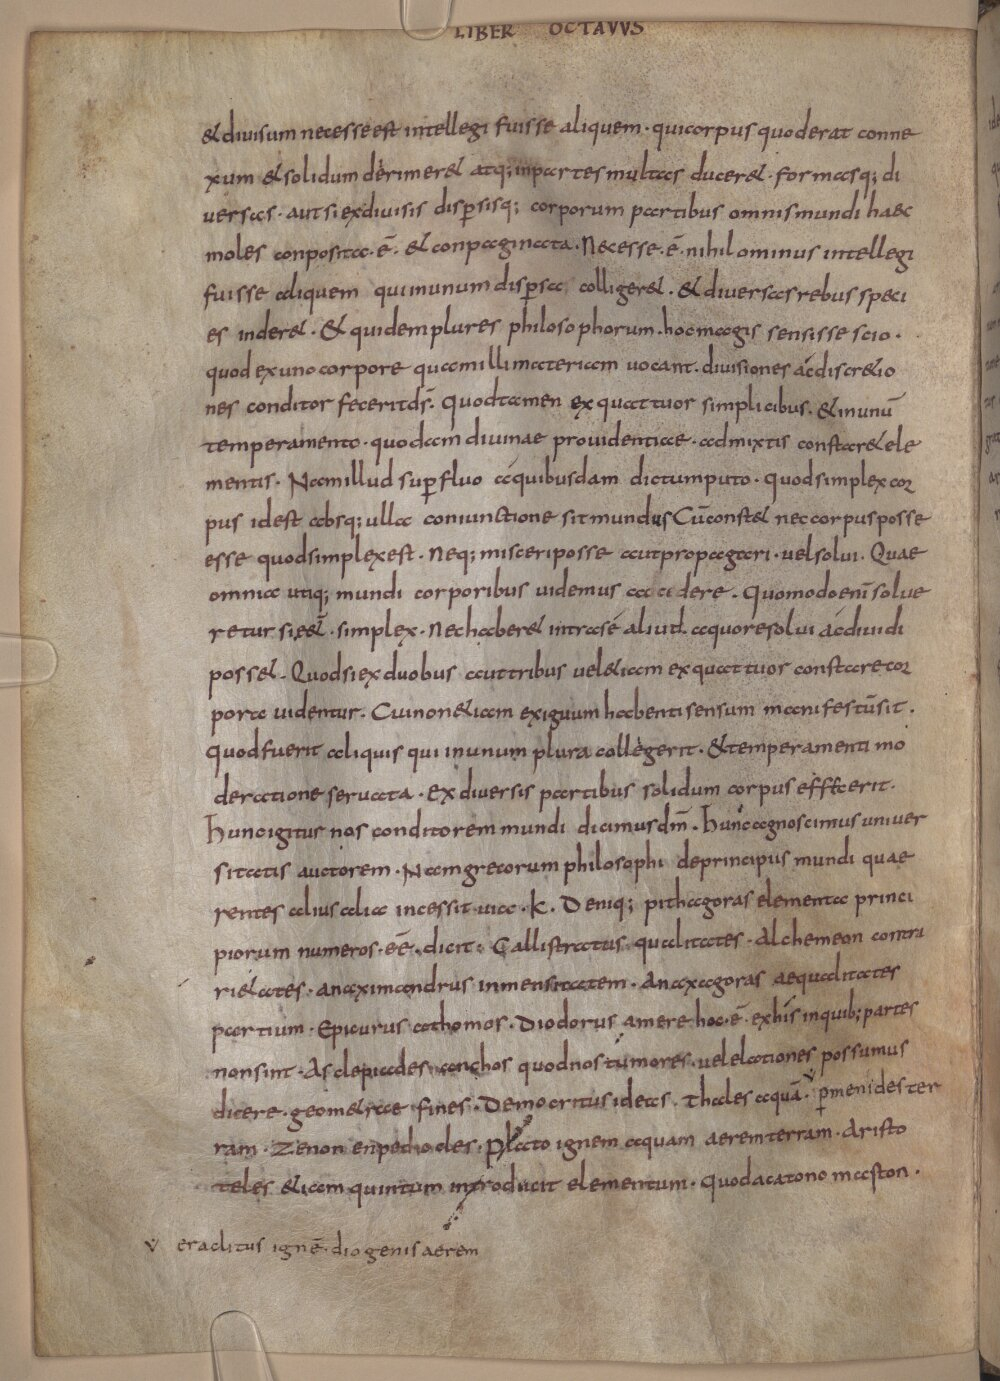 LIBER OCTAVVS
& diuisum necesse est intellegi fuisse aliquem · qui corpus quod erat conne
xum & solidum dèrimer& atq; inpartes multas ducer& · formasq; di
uersas · aut si exdiuisis disꝑsisq; corporum partibus omnis mundi haec
moles conposita · ē · & conpaginata · Necesse · ē · nihilominus intellegi
fuisse aliquem qui inunum disꝑsa colliger& · & diuersas rebus speci
es inder& · & quidem plures philosophorum · hoc magis sensisse scio ·
quod ex uno corpore quam illi materiam uocant · diuisiones ac discr&io
nes conditor fecerit dš · Quod tamen ex quattuor simplicibus · & inunū
temperamento · quodam diuinae prouidentiae · admixtis constar& ele
mentis · Nam illud suꝑfluo a quibusdam dictum puto · quod simplex cor
pus id est absq; ulla coniunctione sit mundus Cū const& nec corpus posse
esse quod simplex est · Neq; misceri posse aut propagari · uel solui · Quae
omnia utiq; mundi corporibus uidemus accedere · Quomodo enī solue
retur si e& · simplex · Nec haber& intra sé aliud · a quo resolui ac diuidi
poss& · Quod si ex duobus aut tribus uel &iam ex quattuor constare cor
pora uidentur · Cui non &iam exiguum habenti sensum manifestū sit ·
quod fuerit aliquis qui inunum plura collegerit · & temperamenti mo
deratione seruata · Ex diuersis partibus solidum corpus effecerit ·
Hunc igitur nos conditorem mundi dicimus dm̄ · Hunc agnoscimus uniuer
sitatis auctorem · Nam grecorum philosophi de principiis mundi quae
rentes alius alia incessit uia · K · Deniq; pithagoras elementa princi
piorum numeros · eē · dicit · Callistratus qualitates · Alchemeon contra
ri&ates · anaximandrus inmensitatem · Anaxagoras aequalitates
partium · Epicurus athomos · Diodorus amere hoc · ē · ex his inquib; partes
non sint · Asclepiades anchos quod nos tumores · uel elationes possumus
dicere · geom&rae fines · Democritus ideas · Thales aquā · ꝑmenides ter
ram · Zenon enpedocles · Plato ignem aquam aerem terram · Aristo
teles &iam quintum introducit elementum · quod acatono maston ·
eraclitus ignē · diogenis aerem